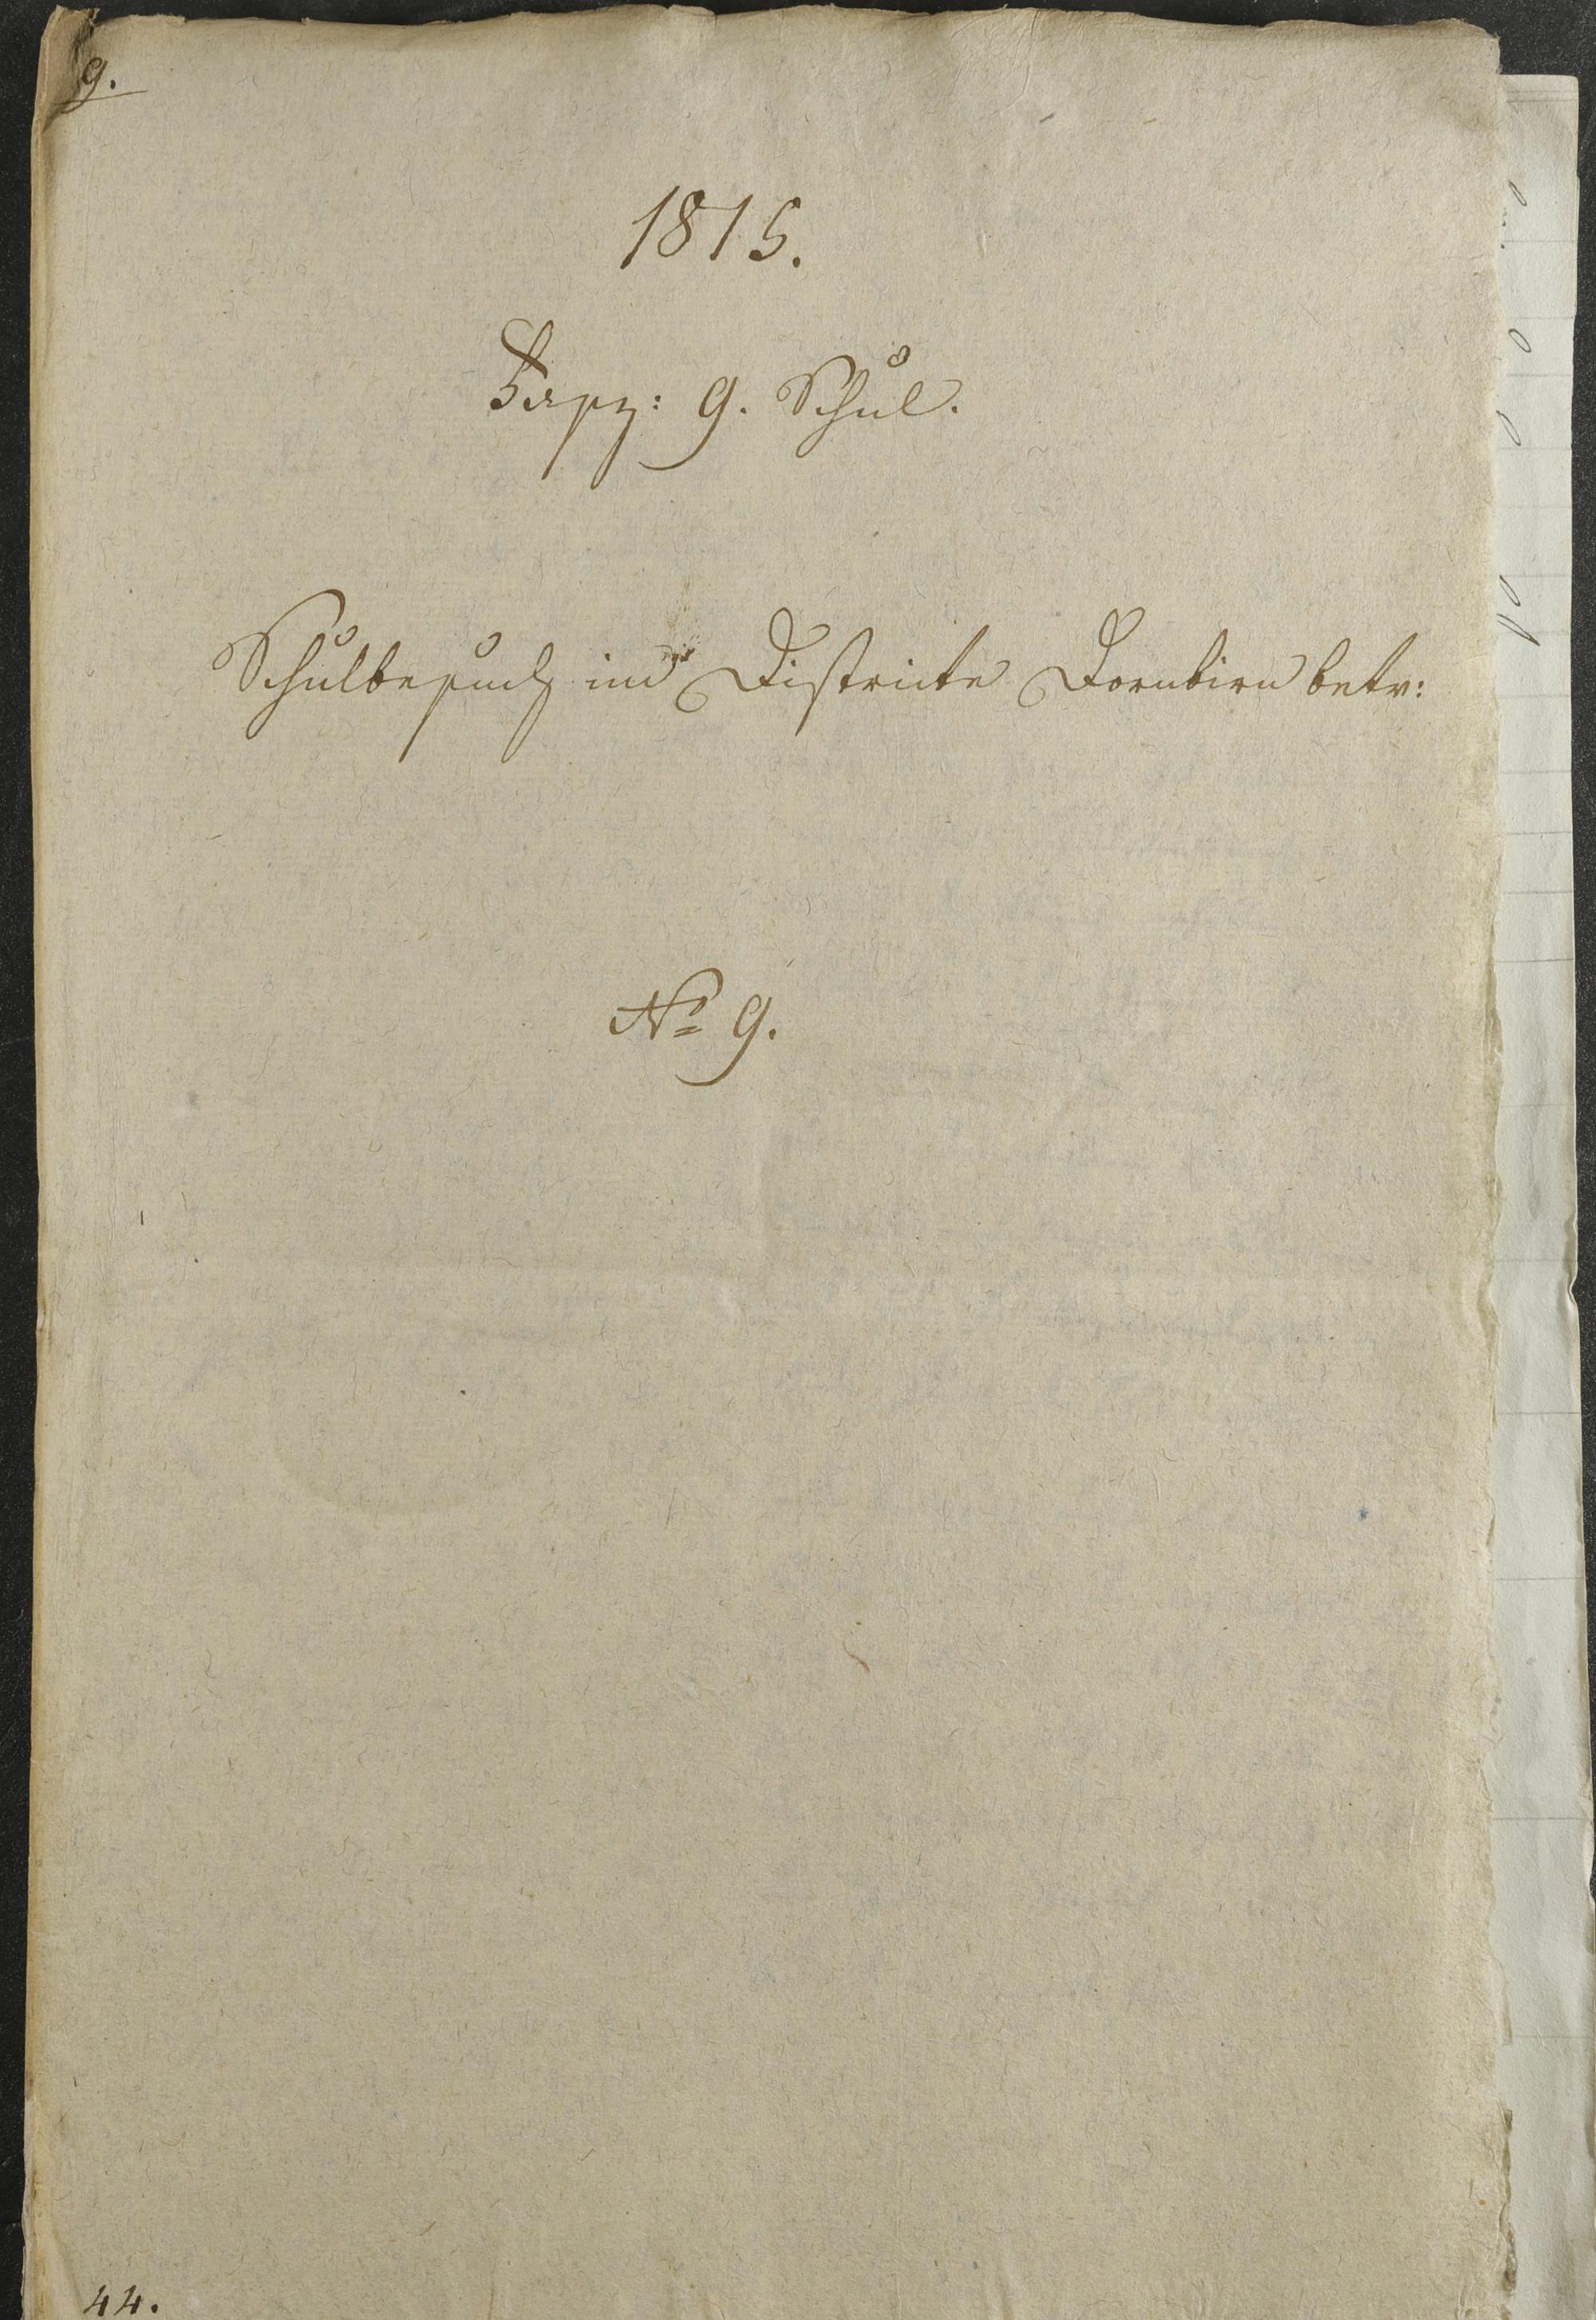 9.
1815.
Fasz: 9. Schul.
Schulbesuch im Districte Dornbirn betr:
No 9.
44.